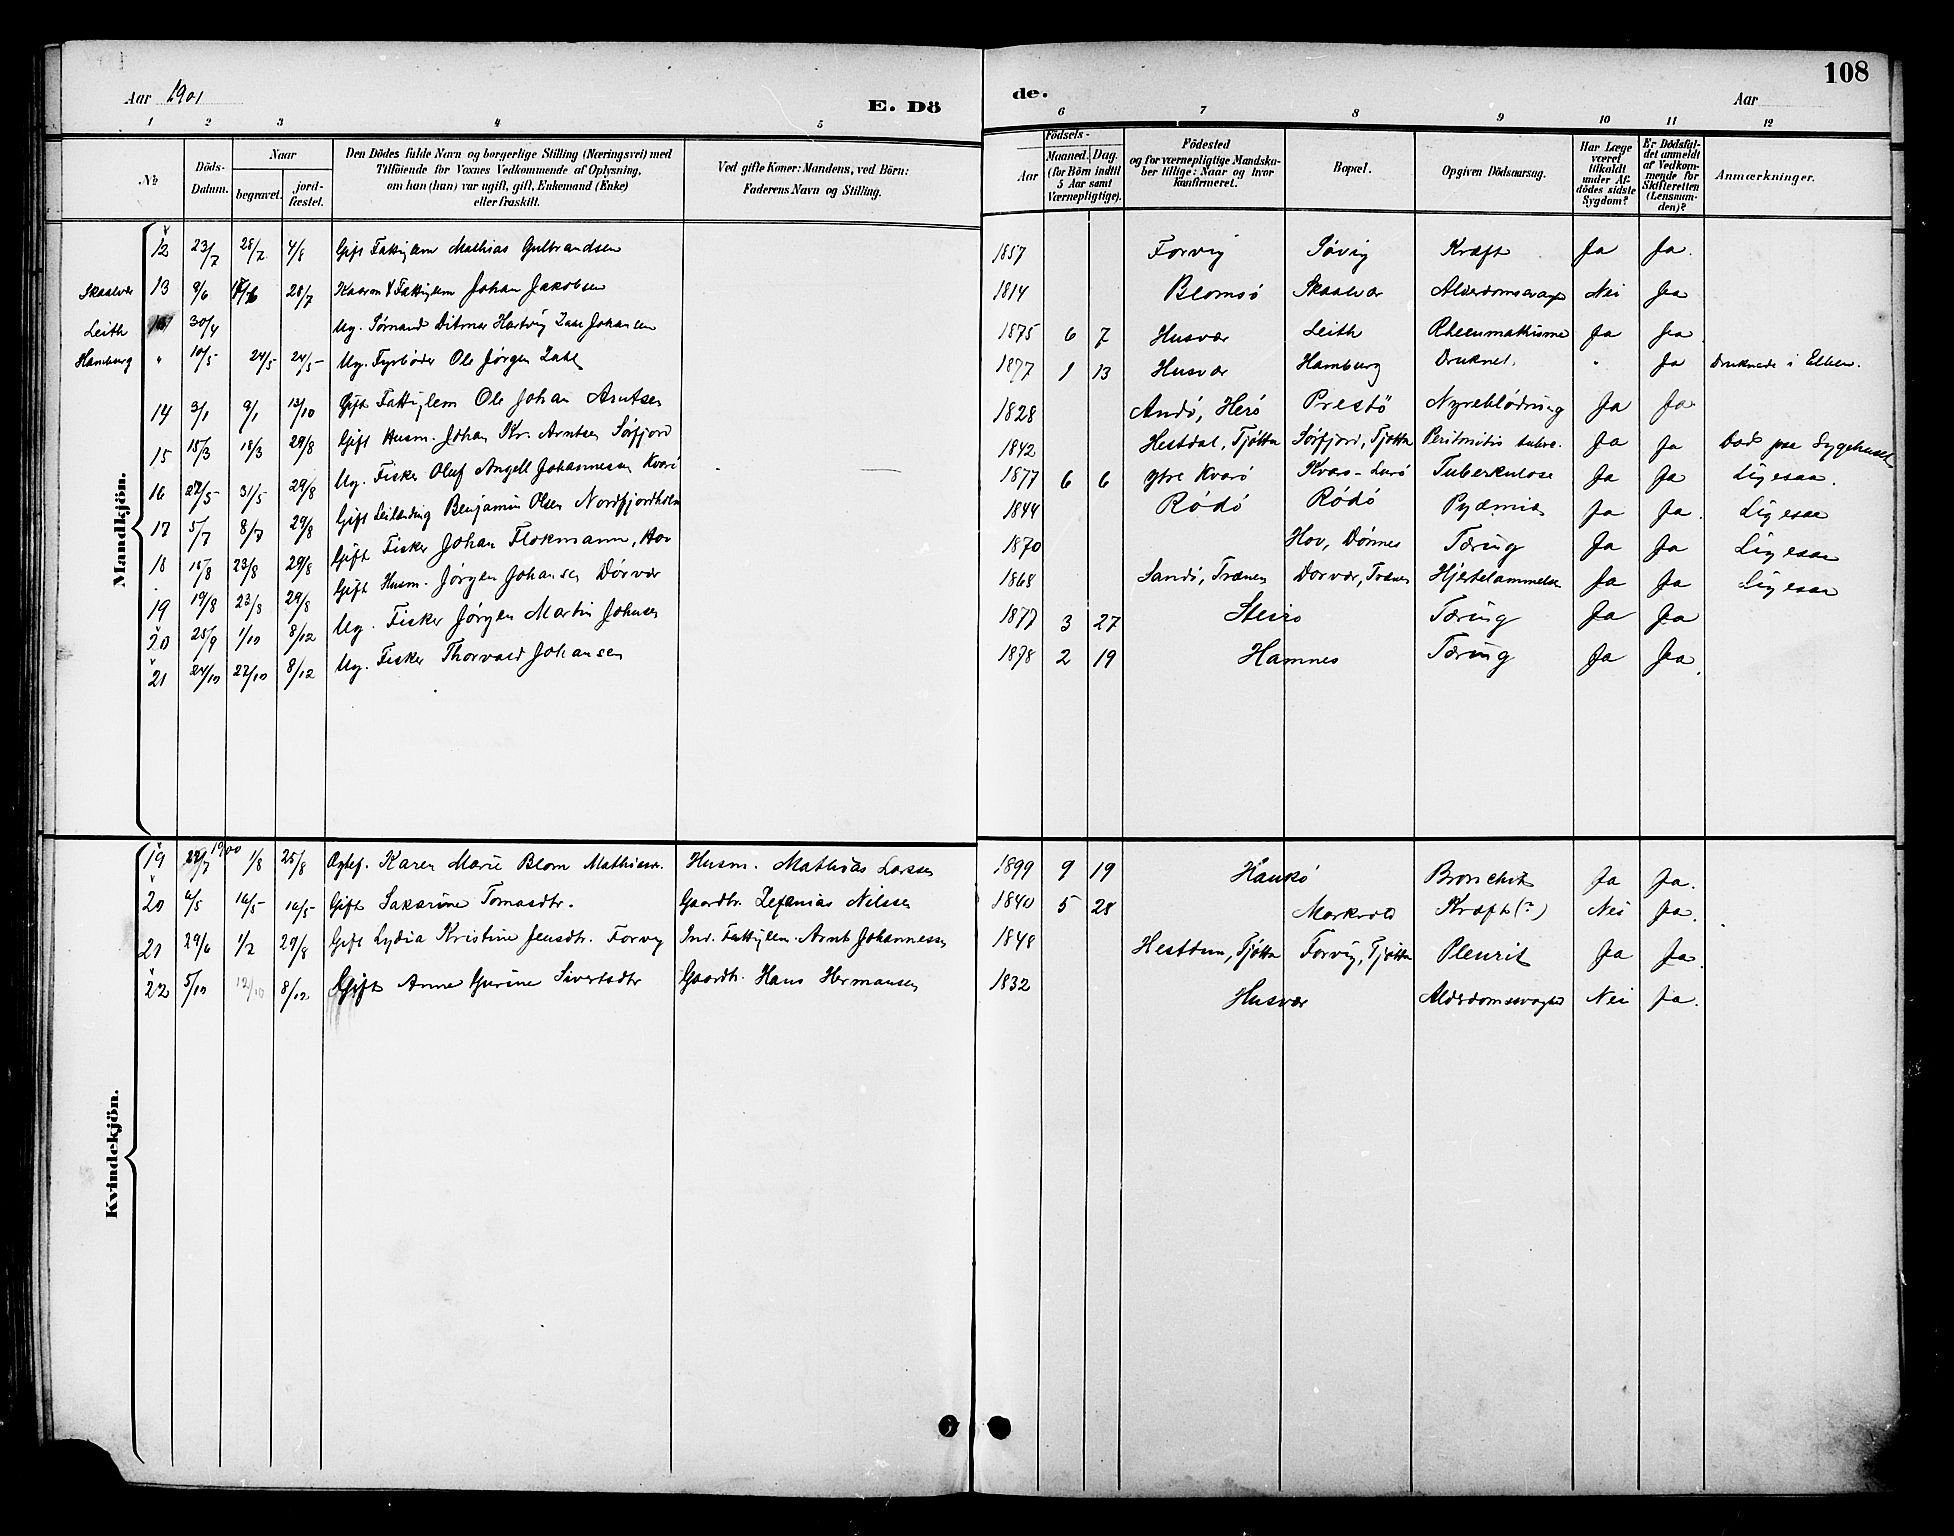 108
Aar 1901 E. Dö de. Aar
1 2 3 4 5 6 7 8 9 10 11 12
№ Döds-Datum. Naar begravet. jordfæstet. Den Dödes fulde Navn og borgerlige Stilling (Næringsvei) med Tilföiende for Voxnes Vedkommende af Oplysning, om han (hun) var ugift, gift, Enkemand (Enke) eller fraskilt. Ved gifte Koner: Mandens, ved Börn: Faderens Navn og Stilling. Aar Födsels- Maaned. Dag. (for Börn indtil 5 Aar samt Værnepligtige). Födested og for værnepligtige Mandskaber tillige: Naar og hvor konfirmeret. Bopæl. Opgiven Dödsaarsag. Har Læge været tilkaldt under Afdödes sidste Sygdom? Er Dödsfaldet anmeldt af Vedkommende for Skifteretten (Lensmanden)? Anmærkninger.
Mandkjön.
12 23/7 28/7 4/8 Gift Fattiglem Mathias Gulbrandsen 1857 Forvig Søvig Kræft Ja Ja.
Skaalvær 13 9/6 28/7 Fattiglem Johan Jakobsen 1814 Blomsö Skaalvær Alderdomssvagh Nei Ja
Leith 30/4 Ug. Sømand Ditmar Hartvig Zahl Johansen 1875 6 7 Husvær Leith Rheumatisme Ja Ja
Hamburg " 10/5 24/5 24/5 Ug. Fyrbøder Ole Jørgen Zahl 1877 1 13 Husvær Hamburg Druknet. " Ja Druknede i Elben.
14 3/1 9/1 13/10 Gift Fattiglem Ole Johan Arntsen 1828 Andö, Herö Prestö Nyreblødning Ja Ja
15 15/3 18/3 29/8 Gift Husm. Johan Kr. Arntsen Sørfjord 1842 Hestdal, Tjøtta Sørfjord, Tjøtta Peritonitis tuberc. Ja Ja Død paa Sygehuset
16 27/5 31/5 29/8 Ug. Fisker Oluf Angell Johannessen Kvarö 1877 6 6 ytre Kvarö Kvarö - Lurö Tuberkulose Ja Ja Ligesaa.
17 5/7 8/7 29/8 Gift Leilending Benjamin Olsen Nordfjordholm 1844 Rödö Rödö Pyæmia Ja Ja. Ligesaa
18 15/8 23/8 29/8 Gift Fisker Johan Flokmann, Hov 1870 Hov, Dönnes Tæring Ja Ja Ligesaa
19 19/8 23/8 29/8 Gift Husm. Jørgen Johansen Dörvær 1868 Sandö, Trænen Dorvær, Trænen Hjertelammelse Ja Ja Ligesaa
20 25/9 1/10 8/12 Ug. Fisker Jørgen Martin Johnsen 1877 3 27 Steiro Tæring Ja Ja
21 24/10 27/10 8/12 Ug. Fisker Thorvald Johansen 1878 2 19 Hamnes Tæring Ja Ja.
Kvindekjön.
19 27/7 1900 1/8 25/8 Ægtef. Karen Marie Blom Mathiasd. Husm. Mathias Larsen 1899 9 19 Haukö Bronchit Ja Ja.
20 4/5 16/5 16/5 Gift Sakarine Tomasdtr. Gaardbr. Zefanias Nilssen 1840 5 28 Markvold Kræft (?) Nei Ja.
21 29/6 1/7 29/8 Gift Lydia Kristine Jensdtr. Forvig Ind. Fattiglem. Arnt Johannessen 1848 Hestdun, Tjøtta Forvig, Tjøtta Pleurit Ja Ja.
22 5/10 12/10 8/12 Gift Anne Gurine Sivertsdtr Gaardbr. Hans Hermansen 1832 Husvær Alderdomssvaghed Nei Ja.